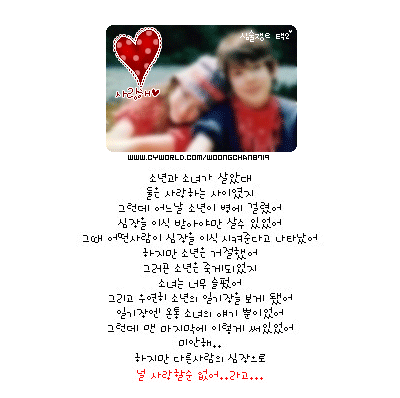 심술쟁의 택2♥
사랑해♥
WWW.CYWORLD.COM/WOONGCHAN8719
소년과 소녀가 살았대
둘은 사랑하는 사이였지
그런데 어느날 소년이 병에 걸렸어
심장을 이식 받아야만 살수 있었어
그때 어떤사람이 심장을 이식 시켜준다고 나타났어
하지만 소년은 거절했어
그러곤 소년은 죽게되었지
소녀는 너무 슬펐어
그리고 우연히 소년의 일기장을 보게 됐어
일기장엔 온통 소녀의 얘기 뿐이었어
그런데 맨 마지막에 이렇게 써있었어
미안해..
하지만 다른사람의 심장으로
널 사랑할순 없어..라고...